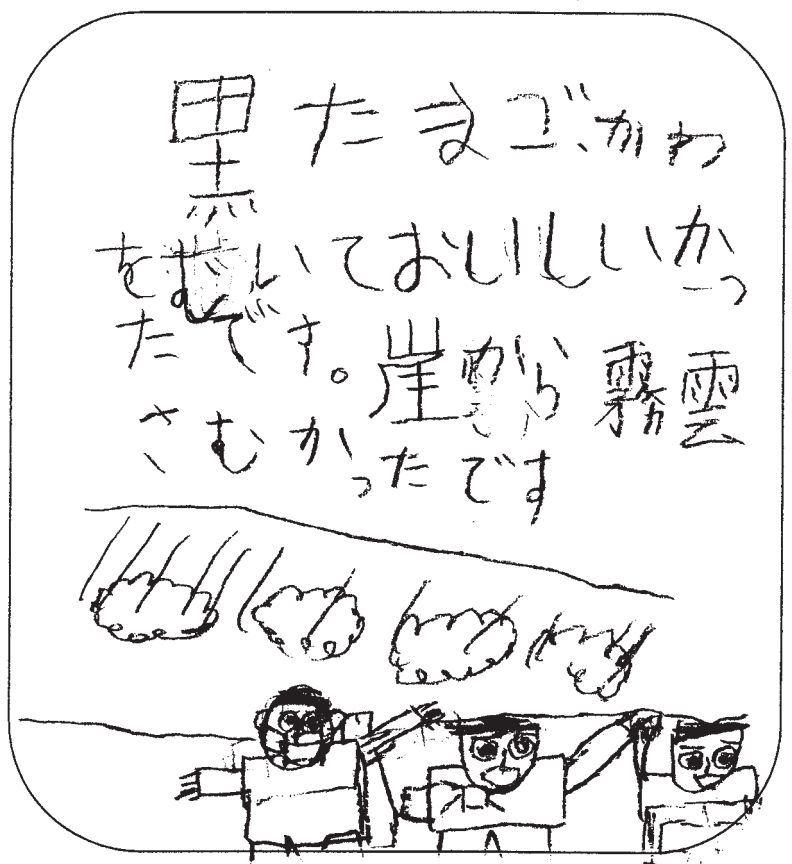 黒たまご、かわ
をむいておいしいかっ
たです。崖から霧雲
さむかったです